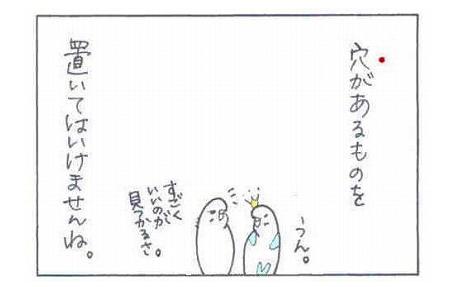 穴があるものを
置いてはいけませんね。
うん。
すごく
いいのが
見つかるさ。